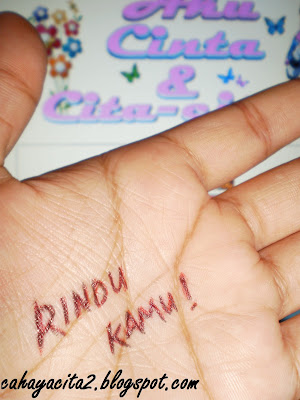 Aku
Cinta
&
Cita-ci
RINDU
KAMU!
cahayacita2.blogspot.com